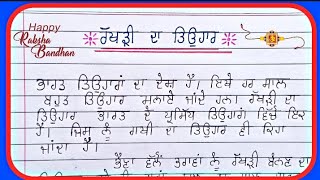 Happy
Raksha
Bandhan
ਰੱਖੜੀ ਦਾ ਤਿਉਹਾਰ
ਭਾਰਤ ਤਿਉਹਾਰਾਂ ਦਾ ਦੇਸ਼ ਹੈ। ਇਥੇ ਹਰ ਸਾਲ
ਬਹੁਤ ਤਿਉਹਾਰ ਮਨਾਏ ਜਾਂਦੇ ਹਨ। ਰੱਖੜੀ ਦਾ
ਤਿਉਹਾਰ ਭਾਰਤ ਦੇ ਪ੍ਰਸਿੱਧ ਤਿਉਹਾਰਾਂ ਵਿੱਚੋਂ ਇਕ
ਹੈ। ਜਿਸ ਨੂੰ ਰਾਖੀ ਦਾ ਤਿਉਹਾਰ ਵੀ ਕਿਹਾ
ਜਾਂਦਾ ਹੈ।
ਭੈਣਾਂ ਵੱਲੋਂ ਭਰਾਵਾਂ ਨੂੰ ਰੱਖੜੀ ਬੰਨਣ ਦਾ